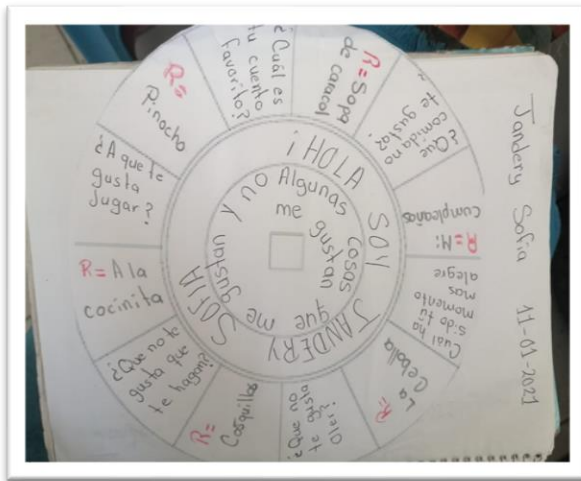 Jandery Sofia 11-01-2021
¡HOLA SOY JANDERY SOFIA
Algunas cosas que me gustan y no
me gustan
¿Cuál es
tu cuento
favorito?
R=
Pinocho
¿A que te
gusta
Jugar?
R= A la
cocinita
¿Que no te
gusta que
te hagan?
R=
Cosquillas
¿Que no
te gusta
oler?
R=
La
Cebolla
Cual ha
sido tu
momento
mas
alegre
R= Mi
Cumpleaños
¿Que
comida no
te gusta?
R= Sopa
de caracol